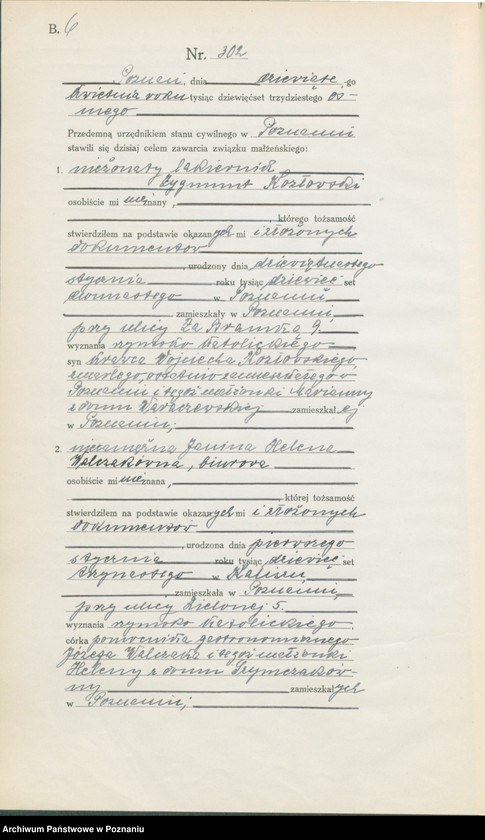 B. 6
Nr. 302
Poznań, dnia dziewiąte -go
kwietnia roku tysiąc dziewięćset trzydziestego ós-
mego
Przedemną urzędnikiem stanu cywilnego w Poznaniu
stawili się dzisiaj celem zawarcia związku małżeńskiego:
1. nieżonaty lakiernik
Zygmunt Kozłowski
osobiście mi nieznany,
, którego tożsamość
stwierdziłem na podstawie okazanych mi i złożonych
dokumentów
, urodzony dnia dziewiętnastego
stycznia roku tysiąc dziewięć set
dwunastego w Poznaniu,
zamieszkały w Poznaniu,
przy ulicy Za Bramką 9.
wyznania rzymsko katolickiego
syn krawca Wojciecha Kozłowskiego,
zmarłego, ostatnio zamieszkałego w
Poznaniu i tegoż małżonki Marianny
z domu zamieszkałej
w Poznaniu;
2. niezamężna Janina Helena
Walczakówna, biurowa
osobiście mi nieznana,
, której tożsamość
stwierdziłem na podstawie okazanych mi i złożonych
dokumentów
, urodzona dnia pierwszego
stycznia roku tysiąc dziewięć set
trzynastego w Kaliszu,
, zamieszkała w Poznaniu,
przy ulicy Zielonej 5.
wyznania rzymsko katolickiego
córka pomocnika gastronomicznego
Józefa Walczaka i tegoż małżonki
Heleny z domu Szymczaków-
ny zamieszkałych
w Poznaniu;
Archiwum Państwowe w Poznaniu